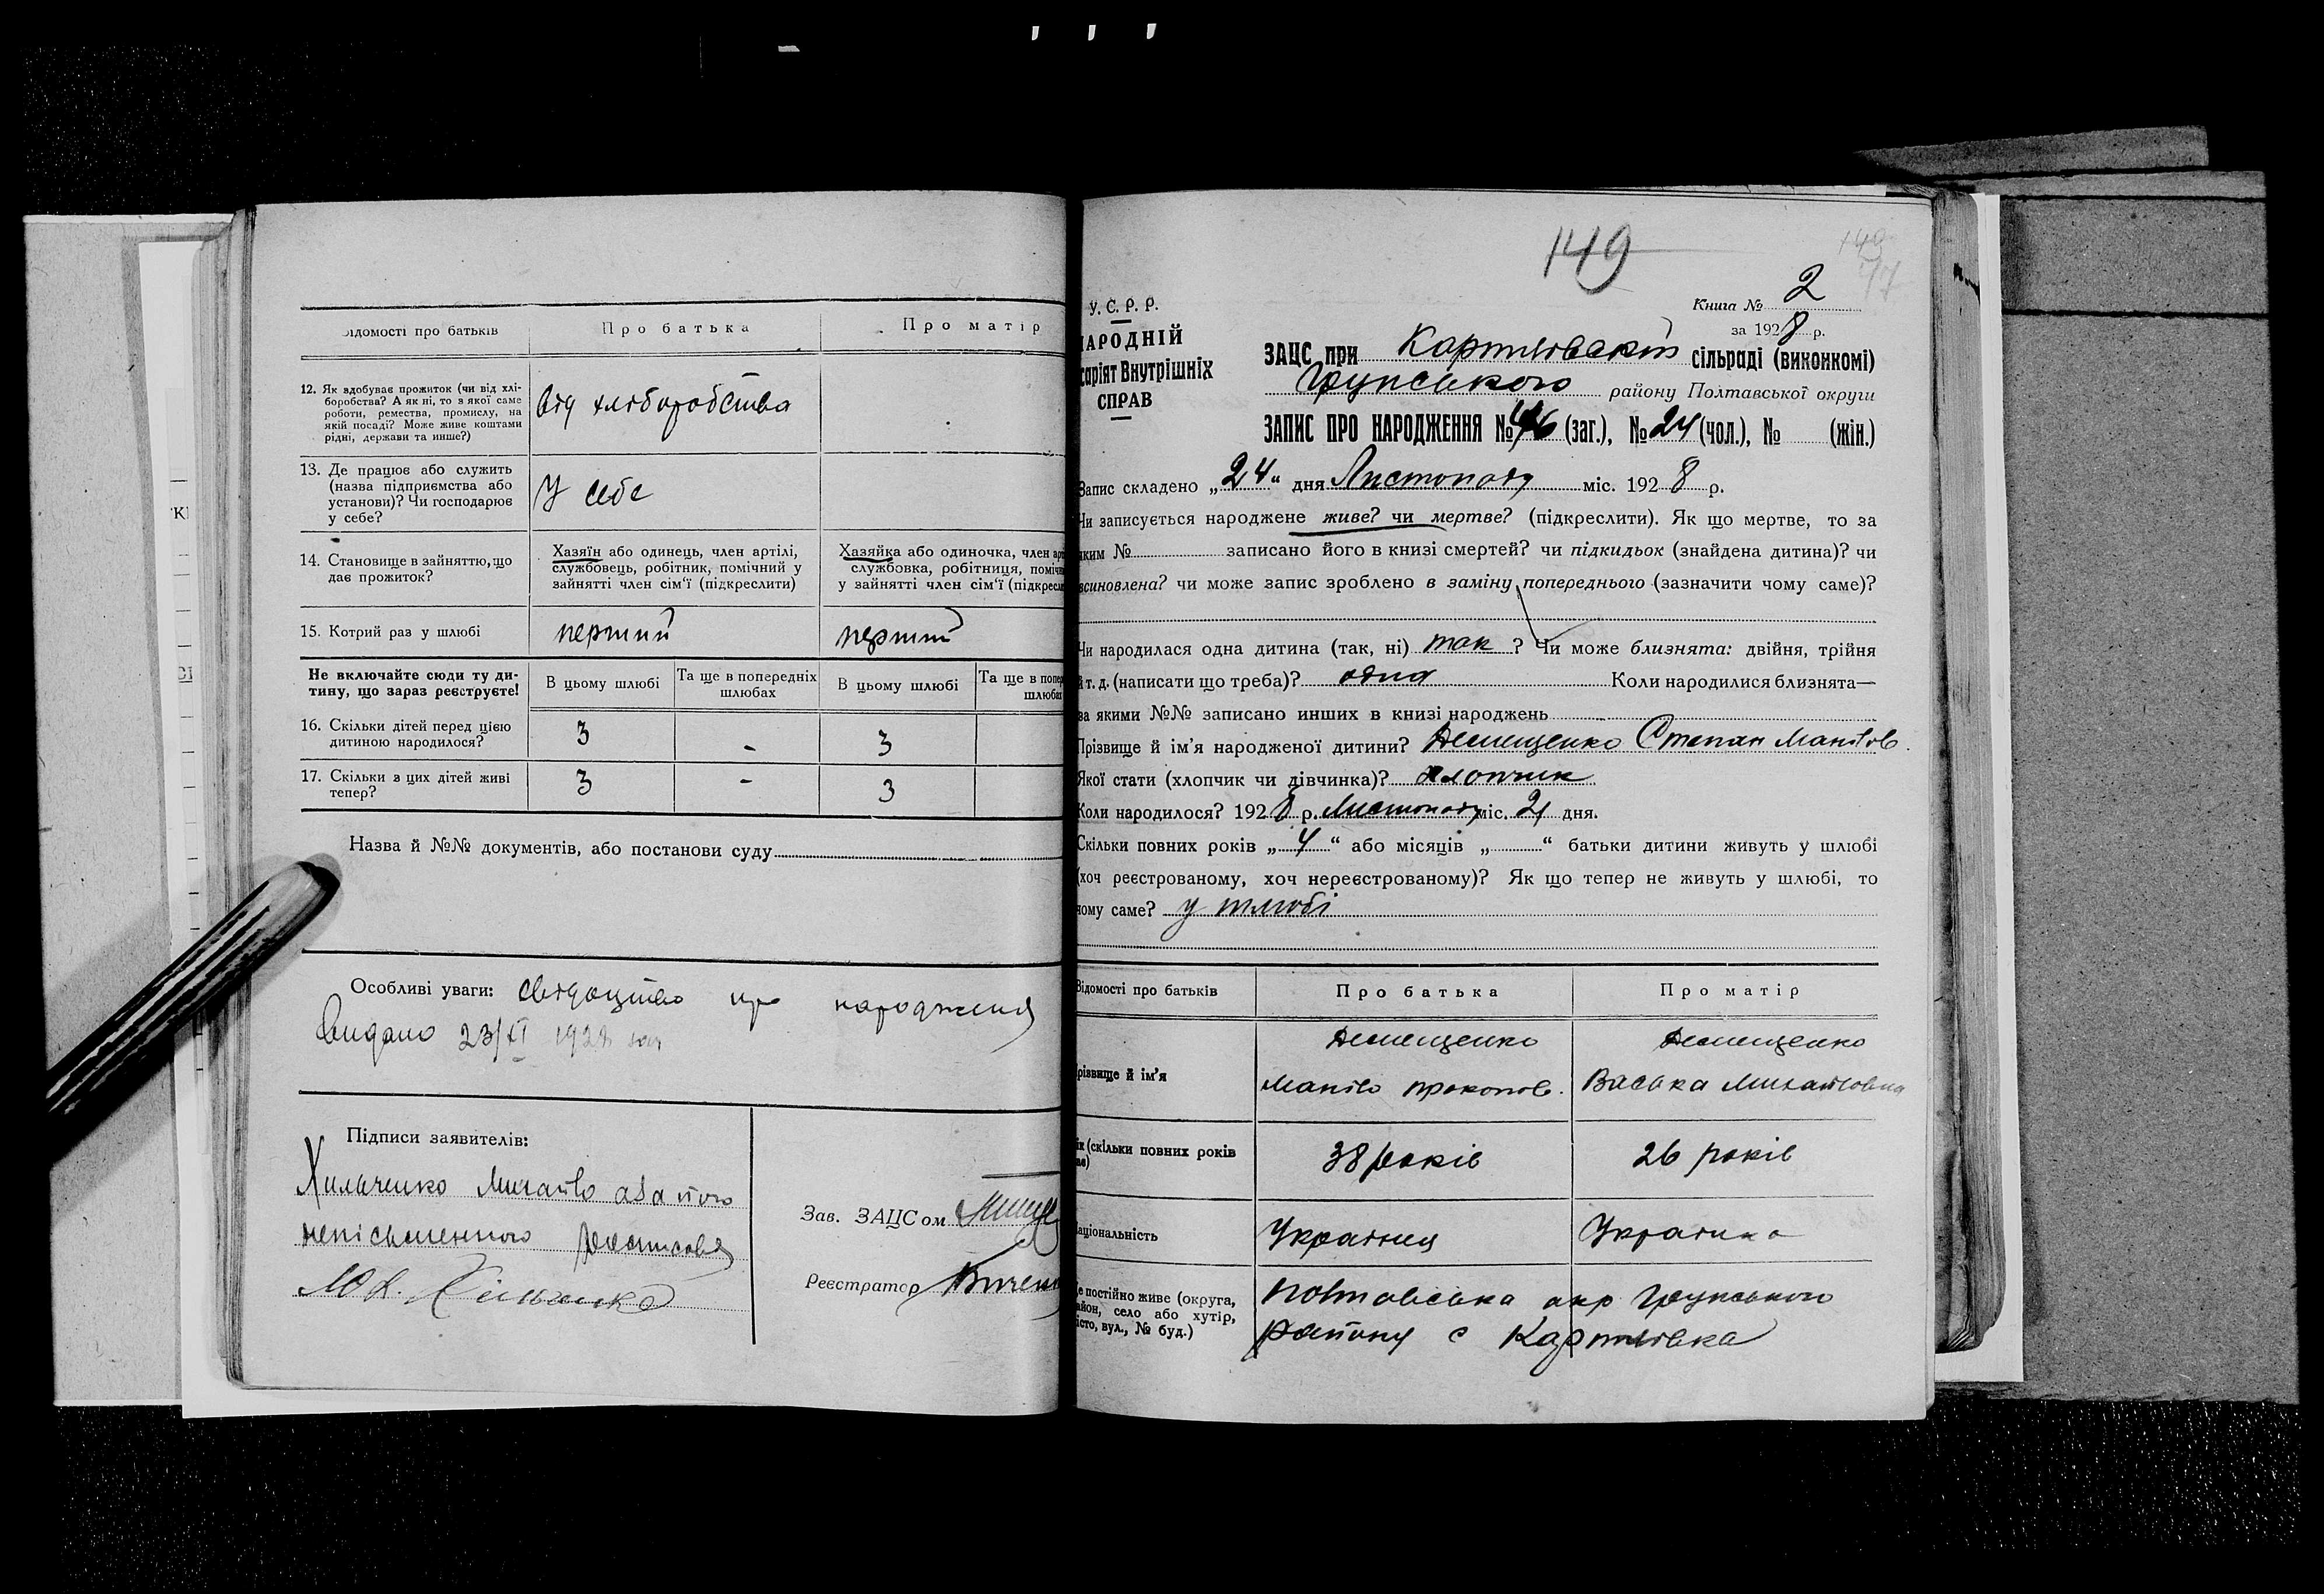 Відомості про батьків
Про батька
Про матір
12. Як здобуває прожиток (чи від хлі-
боробства? А як ні, то з якої саме
роботи, ремества, промислу, на
якій посаді? Може живе коштами
рідні, держави та инше?)
від хліборобства
13. Де працює або служить
(назва підприємства або
установи)? Чи господарює
у себе?
У себе
14. Становище в зайняттю, що
дає прожиток?
Хазяїн або одинець, член артілі,
службовець, робітник, помічний у
зайнятті член сім'ї (підкреслити)
Хазяйка або одиночка, член арт
службовка, робітниця, помічн
у зайнятті член сім'ї (підкресли
15. Котрий раз у шлюбі
перший
перший
Не включайте сюди ту ди-
тину, що зараз реєструєте!
В цьому шлюбі
Та ще в попередніх
шлюбах
В цьому шлюбі
Та ще в попер
шлюбах
16. Скільки дітей перед цією
дитиною народилося?
3
-
3
17. Скільки з цих дітей живі
тепер?
3
-
3
Назва й №№ документів, або постанови суду
Особливі уваги: свідоцтво про народження
Видано 23/XI 1928
Підписи заявителів:
Хильченко Михайло а за його
неписьменного росписався
Зав. ЗАЦСом
Реєстратор
149
149
77
У. С. Р. Р.
НАРОДНІЙ
саріят Внутрішніх
СПРАВ
Книга № 2
за 1928 р.
ЗАЦС при сільраді (виконкомі)
Грунського району Полтавської округи
ЗАПИС ПРО НАРОДЖЕННЯ № 46 (заг.), № 24 (чол.), № (жін.)
Запис складено „24“ дня Листопаду міс. 1928 р.
Чи записується народжене живе? чи мертве? (підкреслити). Як що мертве, то за
яким № записано його в книзі смертей? чи підкидьок (знайдена дитина)? чи
всиновлена? чи може запис зроблено в заміну попереднього (зазначити чому саме)?
Чи народилася одна дитина (так, ні) так ? Чи може близнята: двійня, трійня
й т. д. (написати що треба)? одна Коли народилися близнята—
за якими №№ записано инших в книзі народжень
Прізвище й ім'я народженої дитини? Степан
Якої стати (хлопчик чи дівчинка)? хлопчик
Коли народилося? 1928 р. Листопаду міс. 21 дня.
Скільки повних років „4“ або місяців „ “ батьки дитини живуть у шлюбі
(хоч реєстрованому, хоч нереєстрованому)? Як що тепер не живуть у шлюбі, то
чому саме? у шлюбі
Відомості про батьків
Про батька
Про матір
Прізвище й ім'я
Прокопов.
Васька Михайловна
ік (скільки повних років
38 років
26 років
аціональність
Українец
Українка
е постійно живе (округа,
айон, село або хутір,
істо, вул., № буд.)
Полтавська окр Грунського
району с